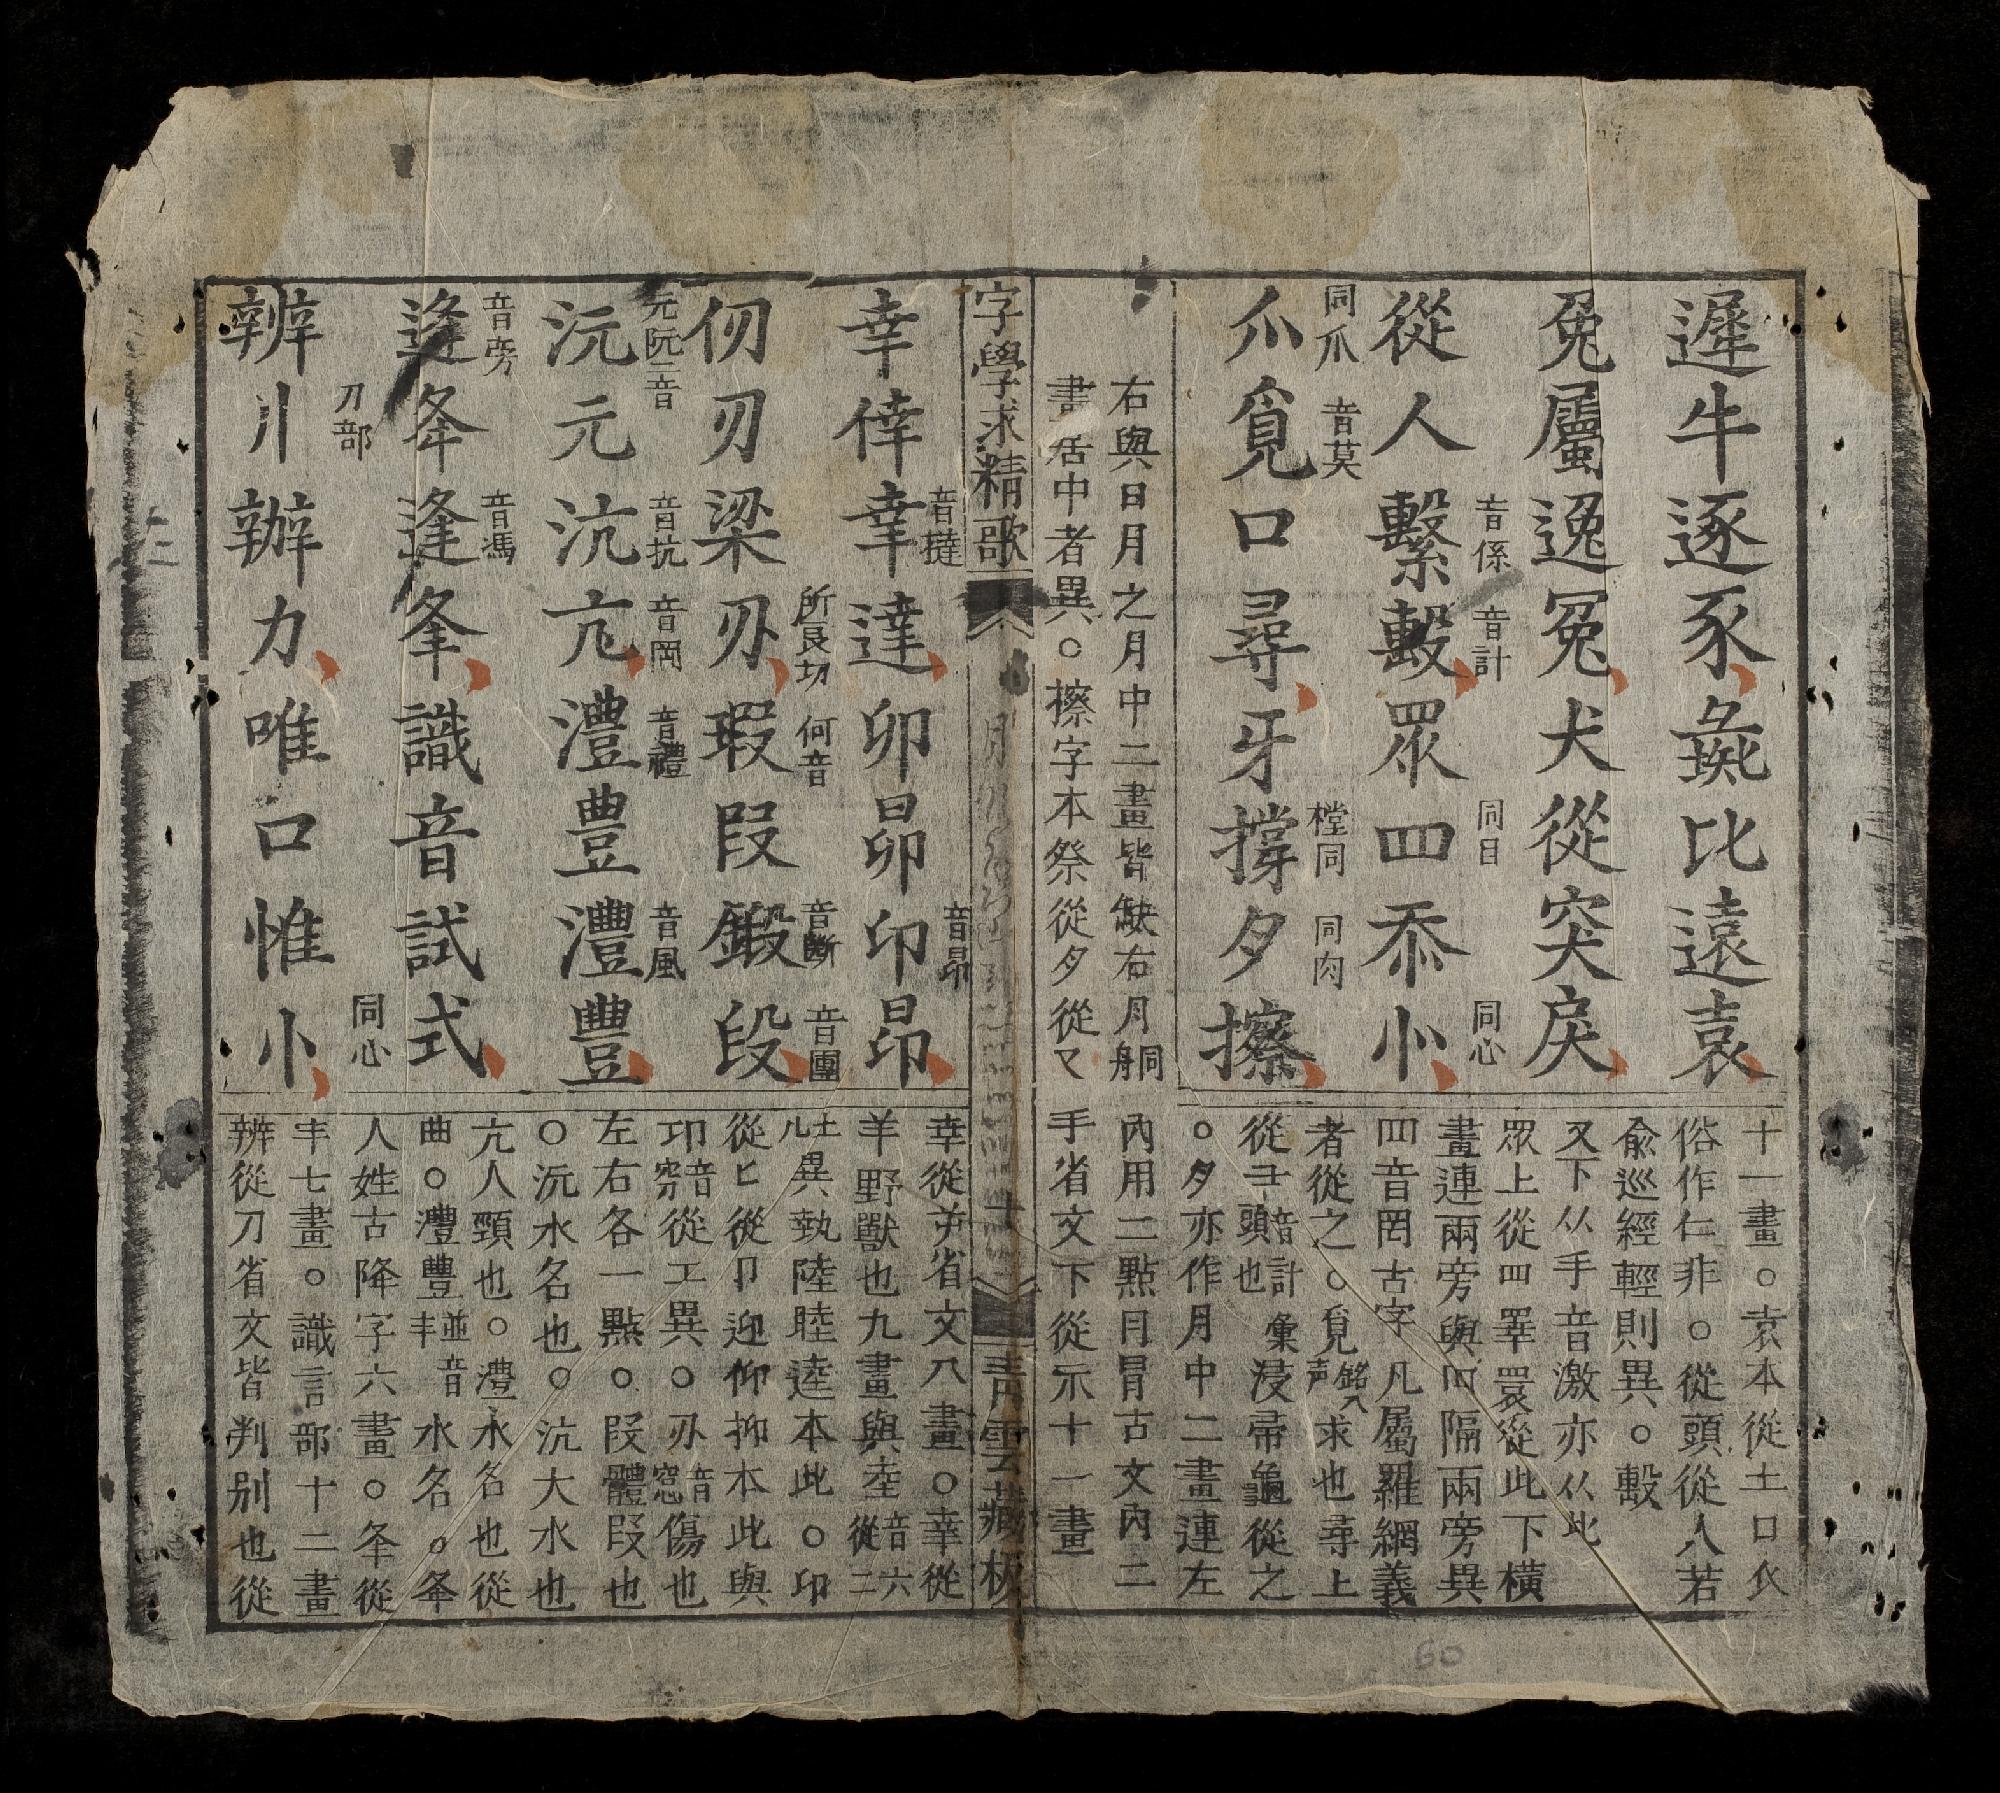 遲牛逐豕彘比遠袁
兔屬逸冤犬從突戾
從人繫毄眾四忝小
音係
音計
同目
同心
爪覓口尋牙撐夕擦
同爪
音莫
樘同
同肉
十一畫○袁本從土口仌
俗作仁非○從頭從人若
俞巡經輕則異○毄
又下从手音激亦从此
眾上從四睪睘從此下橫
畫連兩旁與冂隔兩旁異
四音罔古字凡屬羅網義
者從之○覓銘入声求也尋上
從彐音計頭也彙浸帚龜從之
○夕亦作月中二畫連左
右與日月之月中二畫皆缺右月舸
內用二點冃冒古文內二
畫居中者異○擦字本祭從夕從又
手省文下從示十一畫
字學求精歌
青雲藏板
幸倖幸達卯昴印昂
音撻
音昂
仞刃梁刅瑕叚鍛段
所良切
何音
音斷
音團
沅元沆亢澧豊灃豐
元阮二音
音抗
音岡
音禮
音風
逄夅逢夆識音試式
音旁
音馮
辨刂辦力唯口惟小
刀部
同心
幸從屰省文八畫○幸從
羊野獸也九畫與坴音六從二
土儿異執陸睦逵本此○印
從匕從卩迎仰抑本此與
卭音窮從工異○刅音窓傷也
左右各一點○段體叚也
○沅水名也○沆大水也
亢人頸也○澧水名也從
曲○灃豐並音丰水名○夅
人姓古降字六畫○夆從
丰七畫○識言部十二畫
辨從刀省文皆判別也從